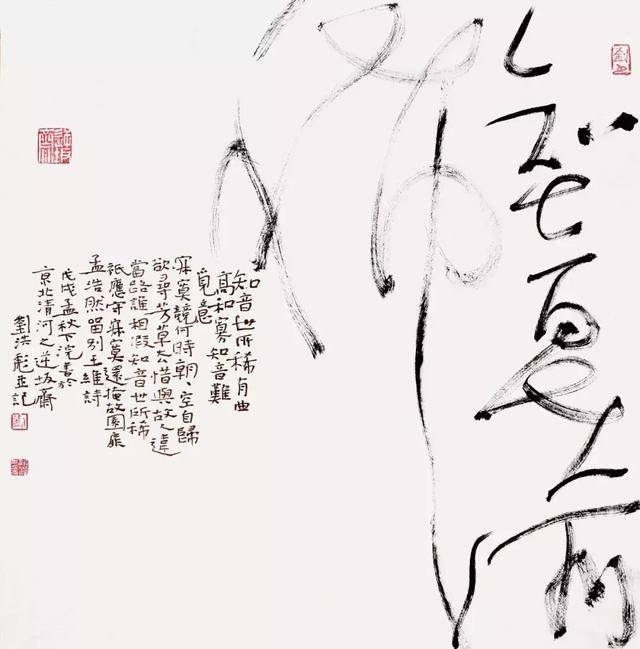 知音世所
稀
知音世所稀有曲
高和寡知音難
覓意
寂寞競何時朝、空自歸
欲尋芳草去惜與故人違
當路誰相假知音世所稀
祇應守寂寞還掩故園扉
孟浩然留別王維詩
戊戌孟秋下浣書於
京北清河之逆坂齋
劉洪彪並記